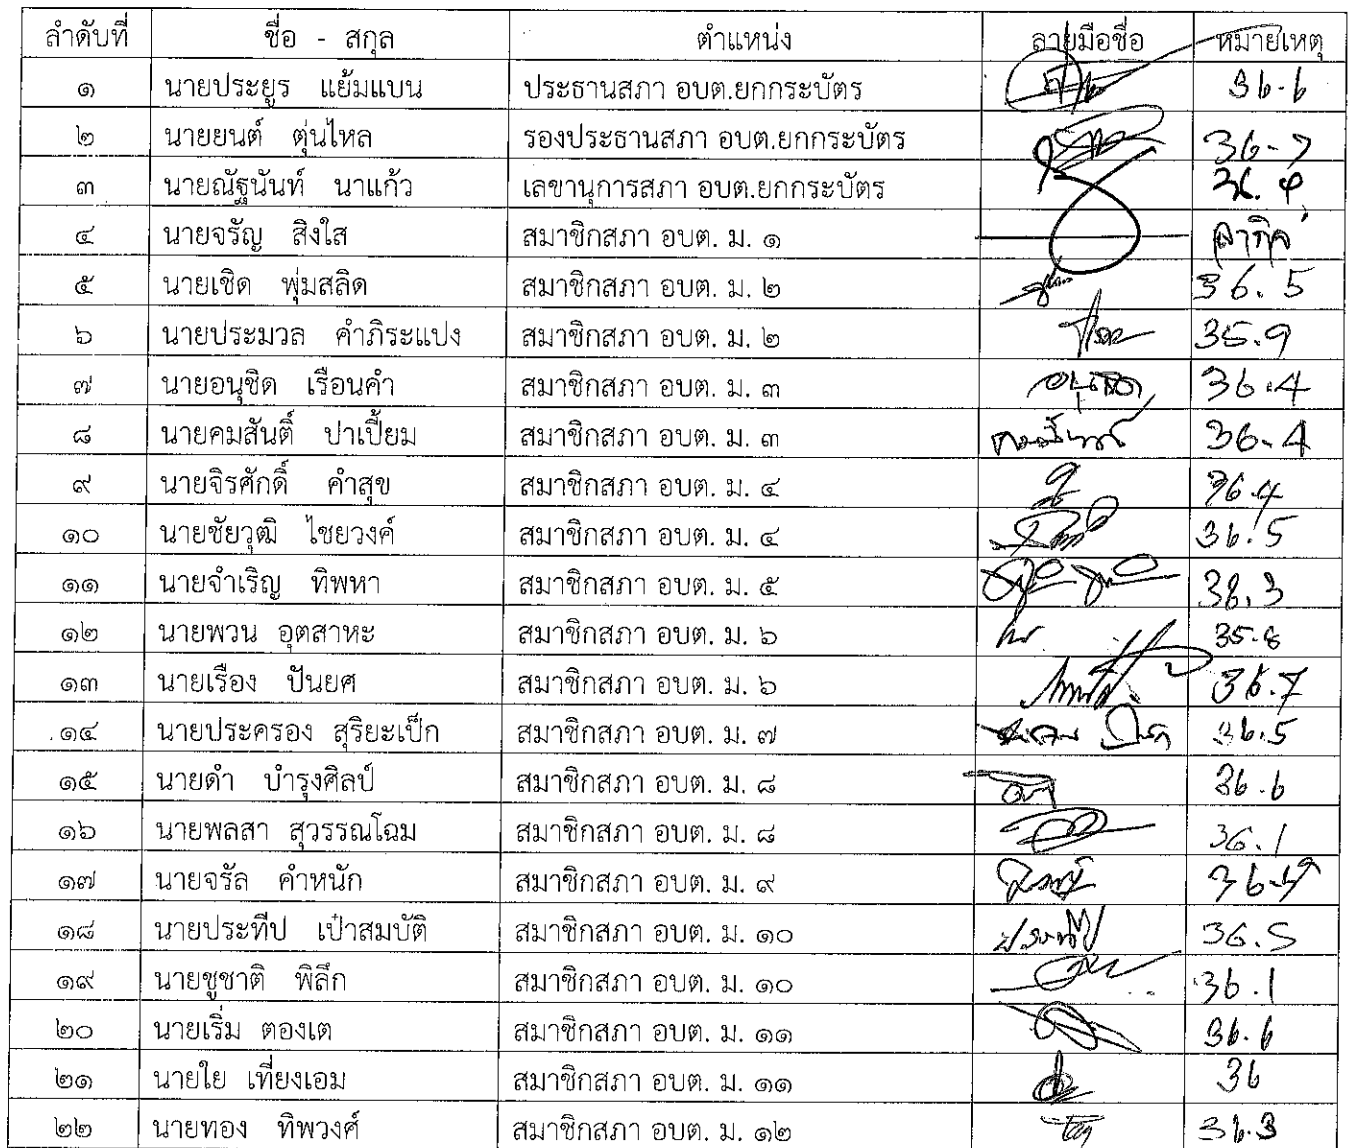 ลำดับที่ ชื่อ - สกุล ตำแหน่ง ลายมือชื่อ หมายเหตุ
๑ นายประยูร แย้มแบน ประธานสภา อบต.ยกกระบัตร 36.6
๒ นายยนต์ ตุ่นไหล รองประธานสภา อบต.ยกกระบัตร 36-7
๓ นายณัฐนันท์ นาแก้ว เลขานุการสภา อบต.ยกกระบัตร
๔ นายจรัญ สิงใส สมาชิกสภา อบต. ม. ๑ ลากิจ
๕ นายเชิด พุ่มสลิด สมาชิกสภา อบต. ม. ๒ 36.5
๖ นายประมวล คำภิระแปง สมาชิกสภา อบต. ม. ๒ 35.9
๗ นายอนุชิด เรือนคำ สมาชิกสภา อบต. ม. ๓ อนุชิด 36.4
๘ นายคมสันติ์ ปาเปี้ยม สมาชิกสภา อบต. ม. ๓ 36.4
๙ นายจิรศักดิ์ คำสุข สมาชิกสภา อบต. ม. ๔ 36.4
๑๐ นายชัยวุฒิ ไชยวงค์ สมาชิกสภา อบต. ม. ๔ 36.5
๑๑ นายจำเริญ ทิพหา สมาชิกสภา อบต. ม. ๕
๑๒ นายพวน อุตสาหะ สมาชิกสภา อบต. ม. ๖ 35.8
๑๓ นายเรือง ปันยศ สมาชิกสภา อบต. ม. ๖ 36.7
๑๔ นายประครอง สุริยะเป็ก สมาชิกสภา อบต. ม. ๗ 36.5
๑๕ นายดำ บำรุงศิลป์ สมาชิกสภา อบต. ม. ๘ 36.6
๑๖ นายพลสา สุวรรณโฉม สมาชิกสภา อบต. ม. ๘ 36.1
๑๗ นายจรัล คำหนัก สมาชิกสภา อบต. ม. ๙
๑๘ นายประทีป เป๋าสมบัติ สมาชิกสภา อบต. ม. ๑๐ ประทีป 36.5
๑๙ นายชูชาติ พิลึก สมาชิกสภา อบต. ม. ๑๐ 36.1
๒๐ นายเริ่ม ตองเต สมาชิกสภา อบต. ม. ๑๑ 36.6
๒๑ นายใย เที่ยงเอม สมาชิกสภา อบต. ม. ๑๑ 36
๒๒ นายทอง ทิพวงศ์ สมาชิกสภา อบต. ม. ๑๒ 36.3